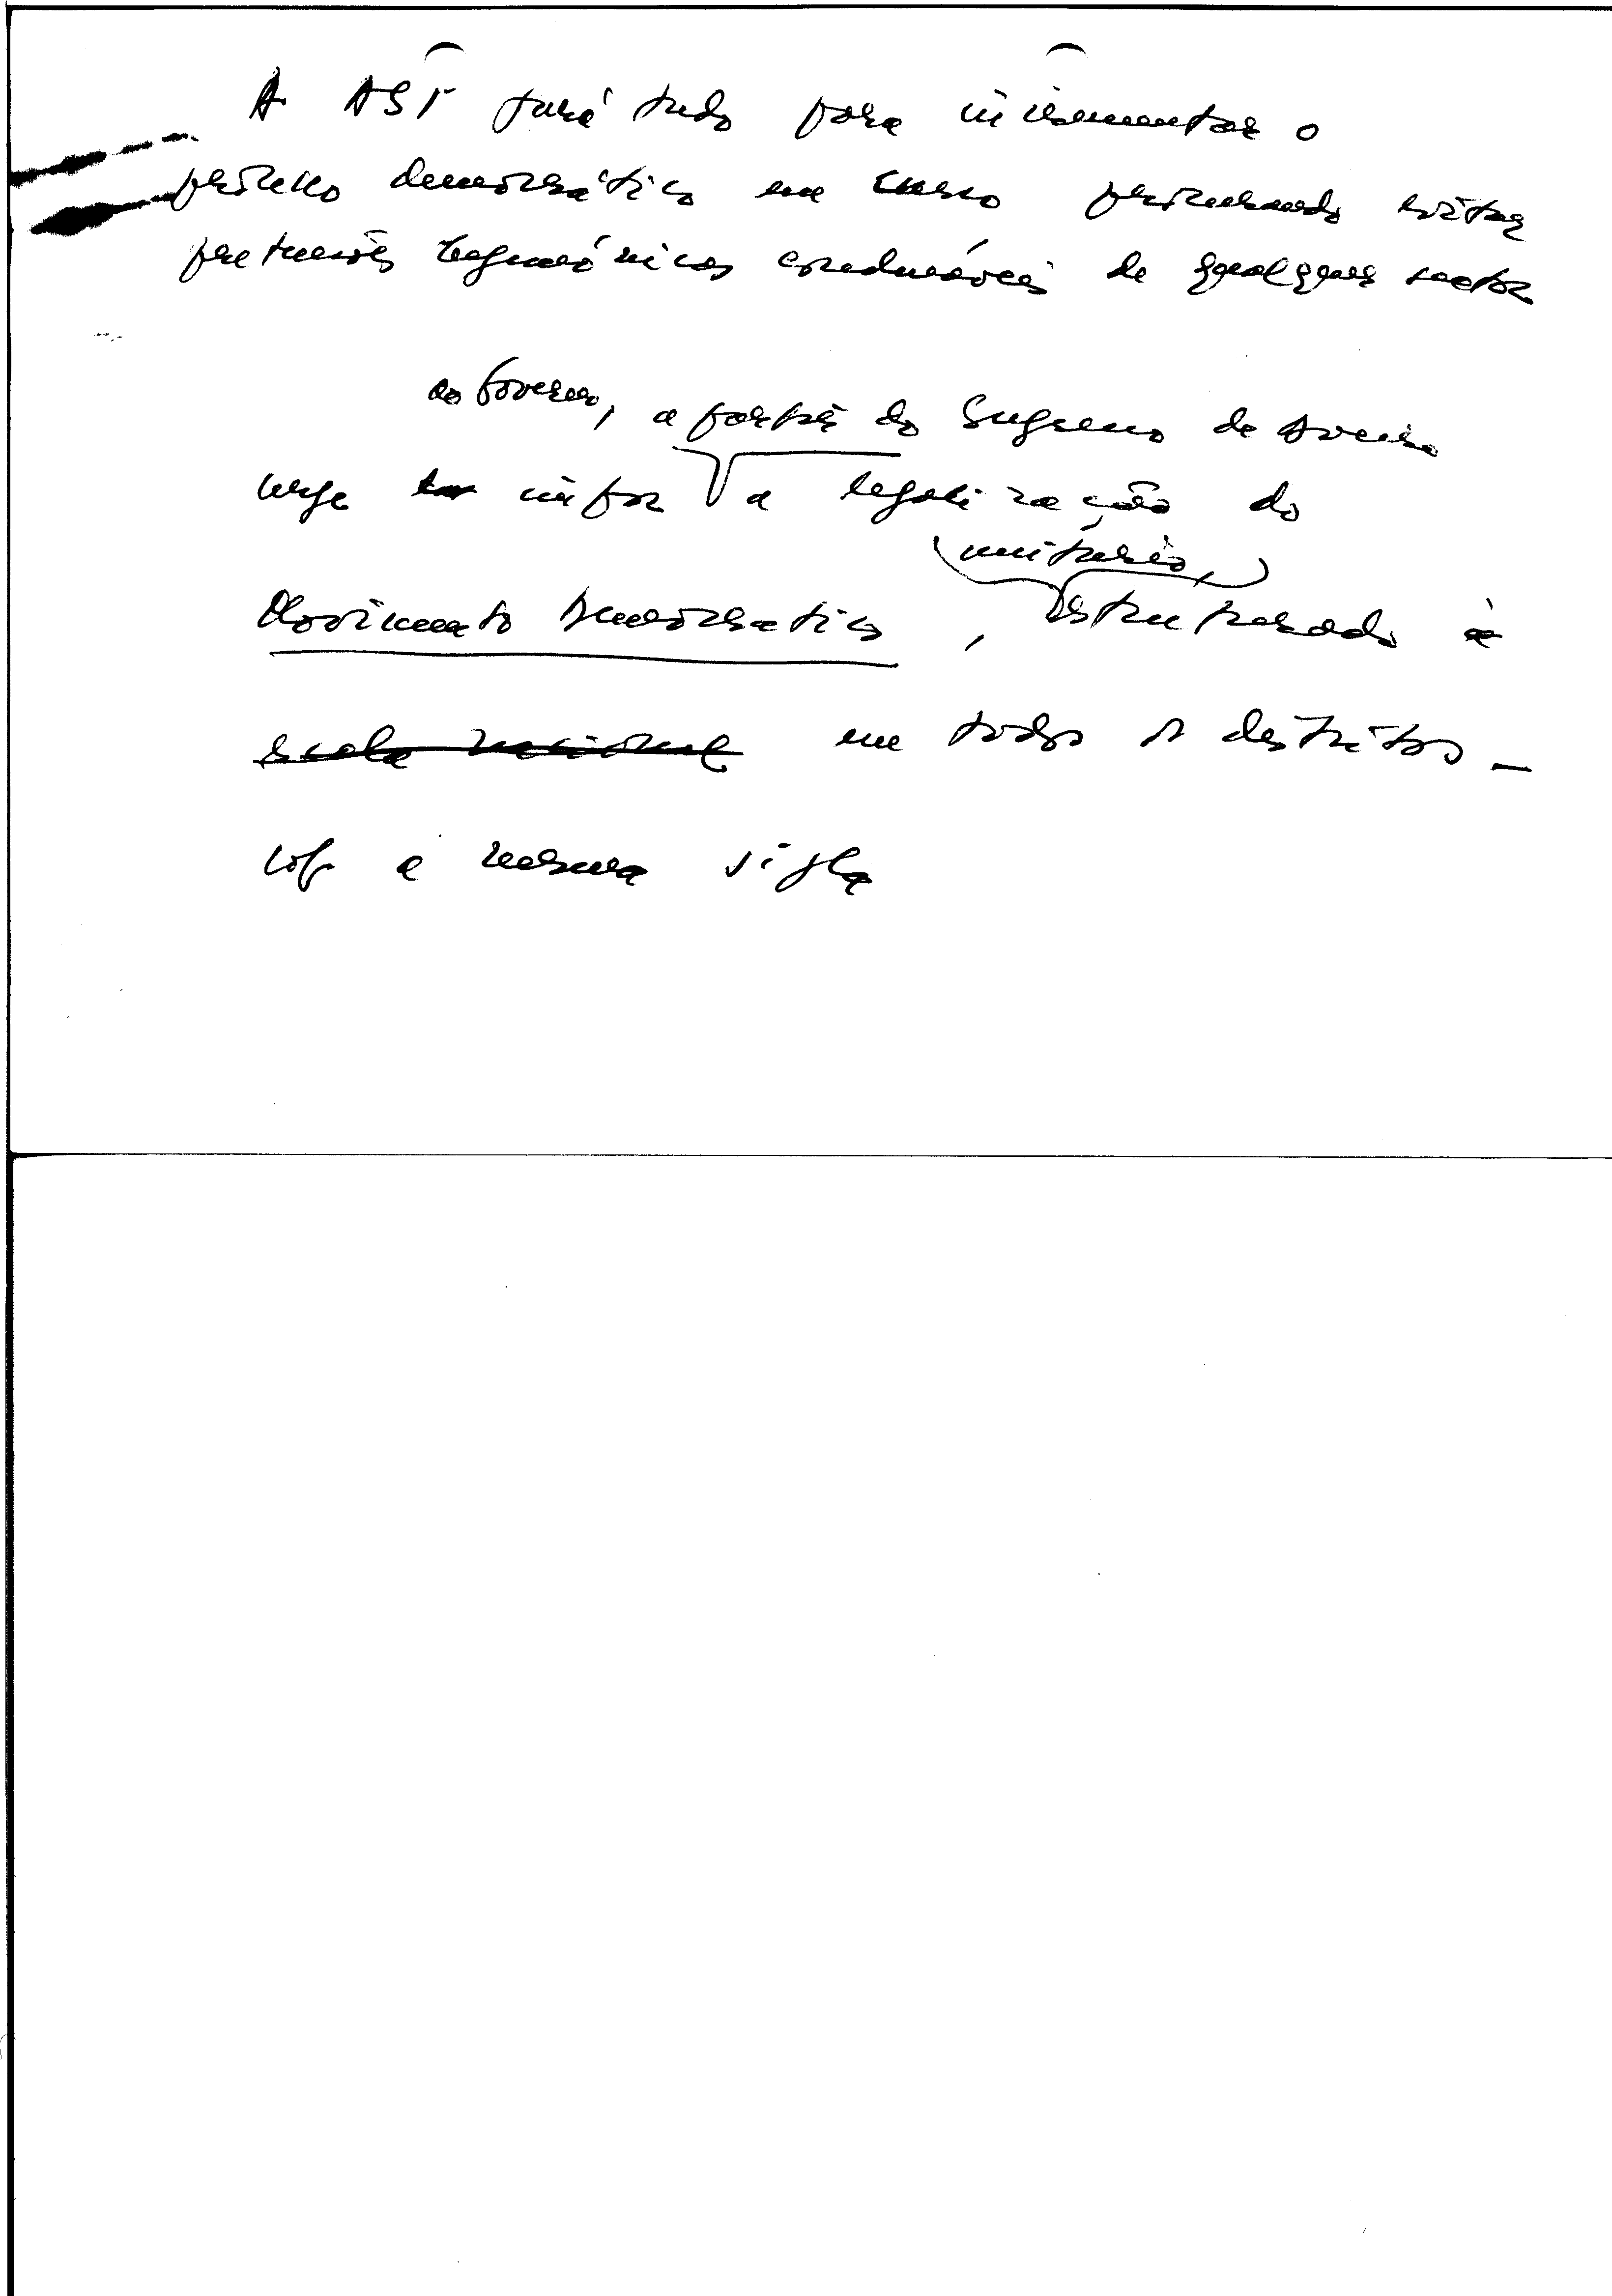 A ASP fará tudo para incrementar o
processo democrático em curso procurando evitar
pretensões hegemónicas condenáveis de qualquer sector
ao Governo, a partir do Congresso de Aveiro
urge impor a legalização do
unitário,
Movimento Democratico, estruturado à
escala nacional em todos os distritos _
sob a mesma sigla